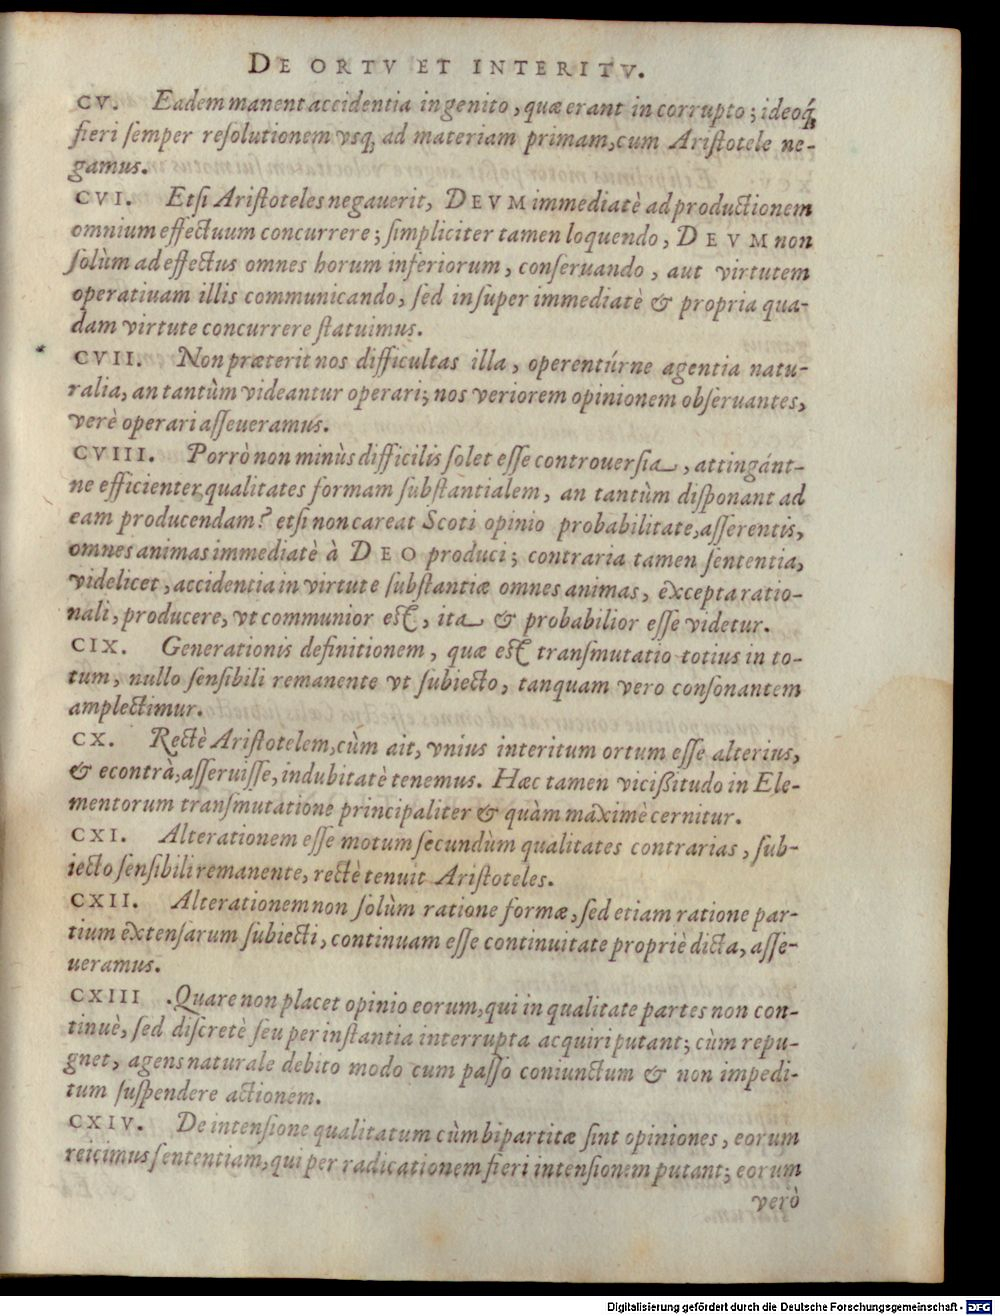 DE ORTV ET INTERITV.
CV. Eadem manent accidentia in genito, quæ erant in corrupto; ideoq́;
fieri semper resolutionem vsq; ad materiam primam, cum Aristotele ne-
gamus.
CVI. Etsi Aristoteles negauerit, DEVM immediatè ad productionem
omnium effectuum concurrere; simpliciter tamen loquendo, DEVM non
solùm ad effectus omnes horum inferiorum, conseruando, aut virtutem
operatiuam illis communicando, sed insuper immediatè & propria qua-
dam virtute concurrere statuimus.
CVII. Non præterit nos difficultas illa, operentúrne agentia natu-
ralia, an tantùm videantur operari; nos veriorem opinionem obseruantes,
verè operari asseueramus.
CVIII. Porrò non minùs difficilis solet esse controuersia, attingánt-
ne efficienter qualitates formam substantialem, an tantùm disponant ad
eam producendam? etsi non careat Scoti opinio probabilitate, asserentis,
omnes animas immediatè à DEO produci; contraria tamen sententia,
videlicet, accidentia in virtute substantiæ omnes animas, excepta ratio-
nali, producere, vt communior est, ita & probabilior esse videtur.
CIX. Generationis definitionem, quæ est transmutatio totius in to-
tum, nullo sensibili remanente vt subiecto, tanquam vero consonantem
amplectimur.
CX. Rectè Aristotelem, cùm ait, vnius interitum ortum esse alterius,
& econtrà, asseruisse, indubitatè tenemus. Hæc tamen vicißitudo in Ele-
mentorum transmutatione principaliter & quàm maximè cernitur.
CXI. Alterationem esse motum secundùm qualitates contrarias, sub-
iecto sensibili remanente, rectè tenuit Aristoteles.
CXII. Alterationem non solùm ratione formæ, sed etiam ratione par-
tium extensarum subiecti, continuam esse continuitate propriè dicta, asse-
ueramus.
CXIII . Quare non placet opinio eorum, qui in qualitate partes non con-
tinuè, sed discretè seu per instantia interrupta acquiri putant; cùm repu-
gnet, agens naturale debito modo cum passo coniunctum & non impedi-
tum suspendere actionem.
CXIV. De intensione qualitatum cùm bipartitæ sint opiniones, eorum
reicimus sententiam, qui per radicationem fieri intensionem putant; eorum
verò
Digitalisierung gefördert durch die Deutsche Forschungsgemeinschaft - DFG